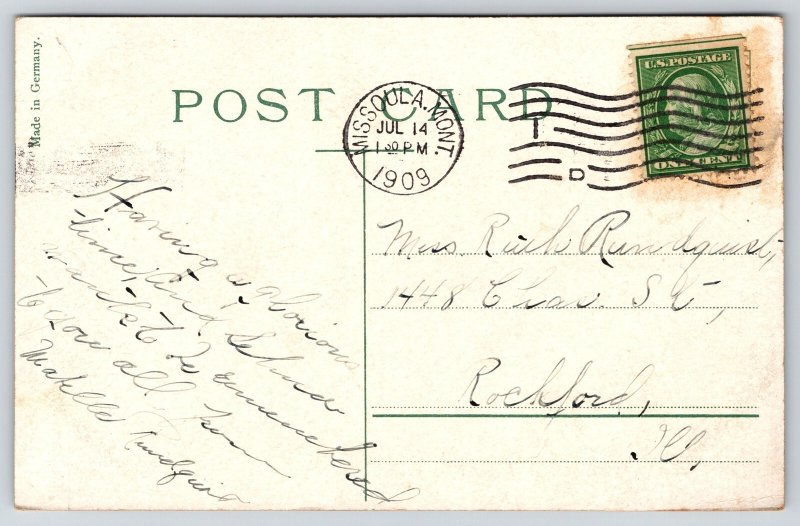 Made in Germany.
POST CARD
MISSOULA, MONT.
JUL 14
1 30 PM
1909
T
D
U.S. POSTAGE
ONE CENT
Having a glorious
time, and
want to be remembered
to you all from
Rundquist
Miss Ruth Rundquist,
1448 Chas. St,
Rockford,
Ill,